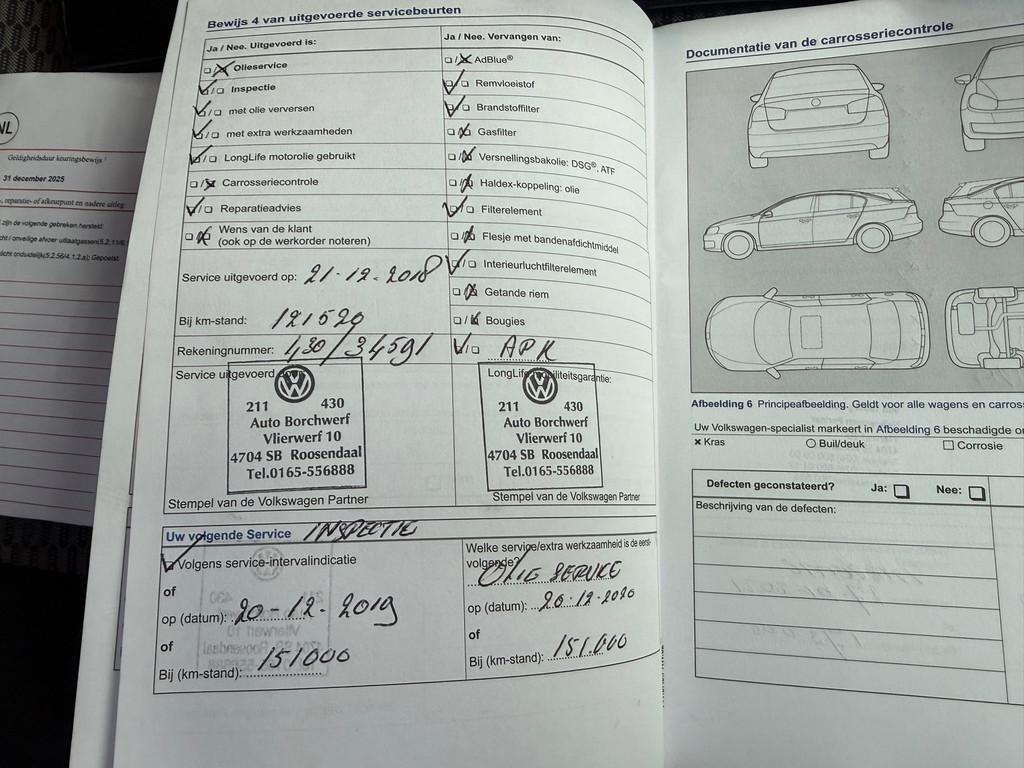 NL
Geldigheidsduur keuringsbewijs
31 december 2025
reparatie- of afkeurpunt en nadere uitleg
zijn de volgende gebreken hersteld:
Bewijs 4 van uitgevoerde servicebeurten
Ja / Nee. Uitgevoerd is:
Olieservice
Inspectie
met olie verversen
met extra werkzaamheden
LongLife motorolie gebruikt
Carrosseriecontrole
Reparatieadvies
Wens van de klant
(ook op de werkorder noteren)
Service uitgevoerd op: 21-12-2018
Bij km-stand: 121520
Rekeningnummer: 430/34591
Service uitgevoerd
211 430
Auto Borchwerf
Vlierwerf 10
4704 SB Roosendaal
Tel.0165-556888
Stempel van de Volkswagen Partner
Ja / Nee. Vervangen van:
AdBlue®
Remvloeistof
Brandstoffilter
Gasfilter
Versnellingsbakolie: DSG®, ATF
Haldex-koppeling: olie
Filterelement
Flesje met bandenafdichtmiddel
Interieurluchtfilterelement
Getande riem
Bougies
APK
211 430
Auto Borchwerf
Vlierwerf 10
4704 SB Roosendaal
Tel.0165-556888
Stempel van de Volkswagen Partner
Uw volgende Service INSPECTIE
Volgens service-intervalindicatie
of
op (datum): 20-12-2019
of
Bij (km-stand): 151000
Welke service/extra werkzaamheid is de eerst-
volgende? OLIE SERVICE
op (datum): 20-12-2020
of
Bij (km-stand): 151.000
Documentatie van de carrosseriecontrole
Afbeelding 6 Principeafbeelding. Geldt voor alle wagens en carross
Uw Volkswagen-specialist markeert in Afbeelding 6 beschadigde
Kras Buil/deuk Corrosie
Defecten geconstateerd? Ja: Nee:
Beschrijving van de defecten: